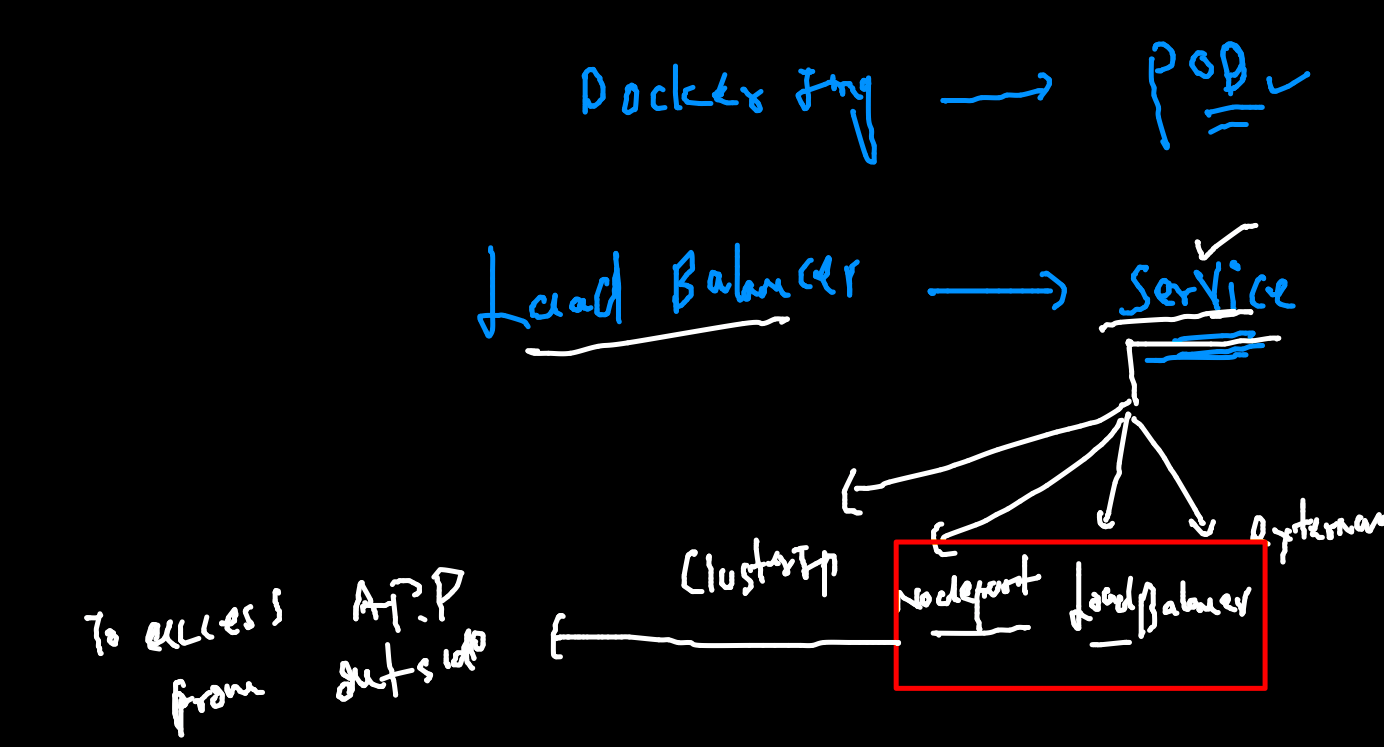 Docker Img → POD ✓
Load Balancer → Service
ClusterIp Nodeport LoadBalancer
To access APP
from outside